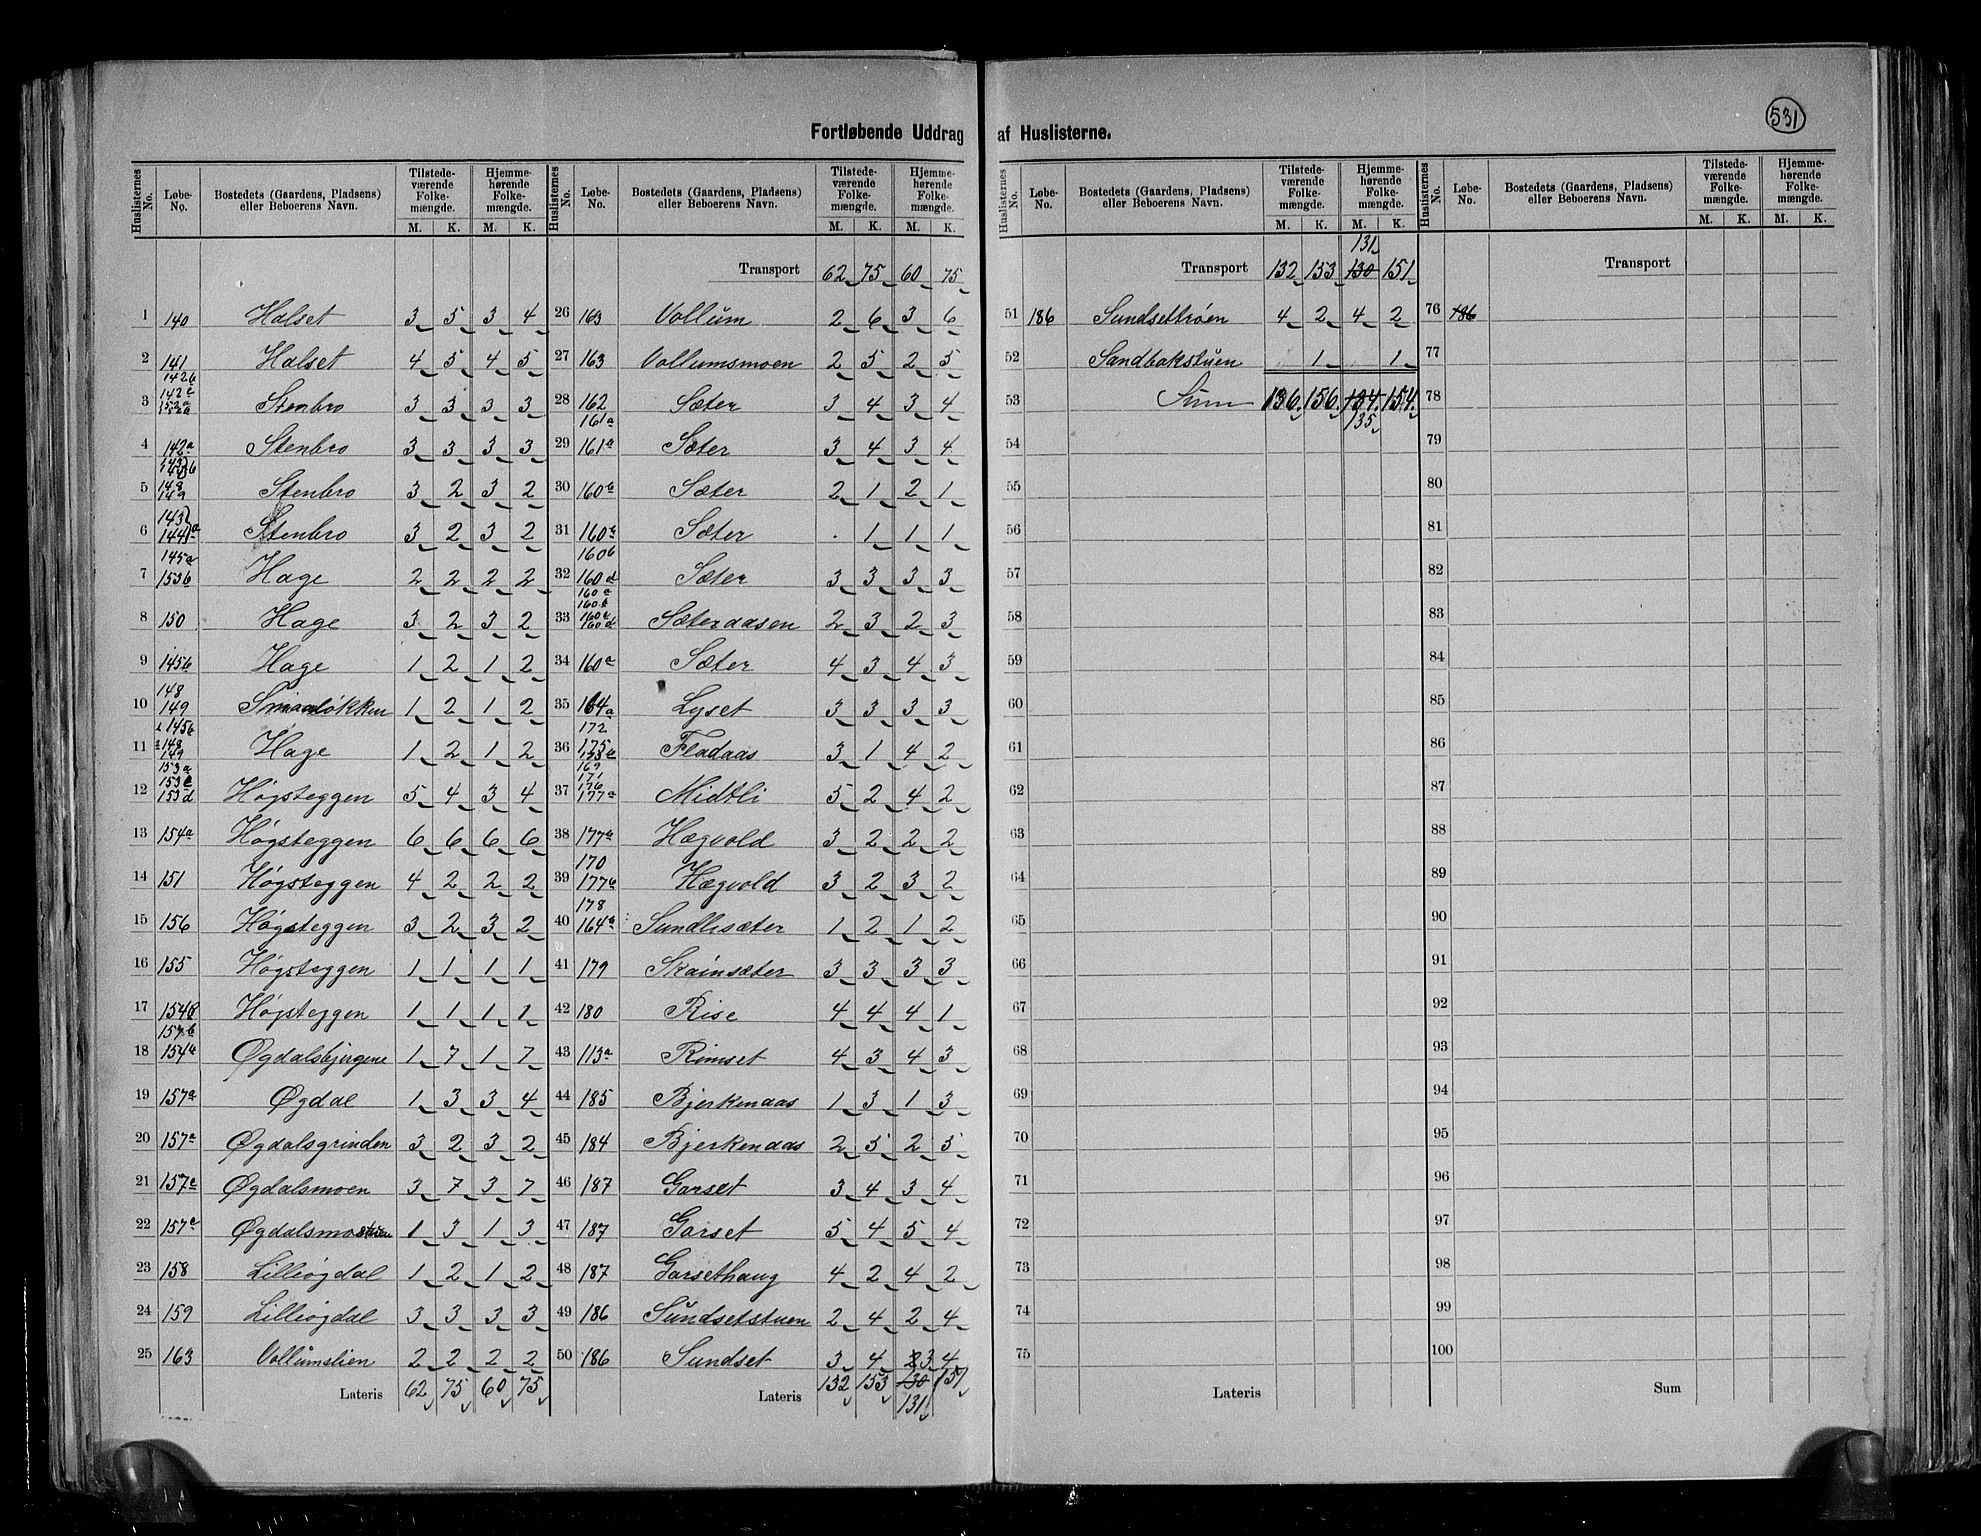 Fortløbende Uddrag af Huslisterne.
531
Huslisternes No. Løbe-No. Bostedets (Gaardens, Pladsens) eller Beboerens Navn. Tilstedeværende Folkemængde. M. K. Hjemmehørende Folkemængde. M. K.
1 140 Halset 3 5 3 4
2 141 Halset 4 5 4 5
3 142b 142c 152a 152b Stenbro 3 3 3 3
4 142a Stenbro 3 3 3 3
5 148 149 Stenbro 3 2 3 2
6 143 144 a Stenbro 3 2 3 2
7 145a 153b Hage 2 2 2 2
8 150 Hage 3 2 3 2
9 145b Hage 1 2 1 2
10 148 149 Smaaløkken 1 2 1 2
11 145b 148 149 Hage 1 2 1 2
12 153a 153c 153d Høgsteggen 5 4 3 4
13 154a Høgsteggen 6 6 6 6
14 151 Høgsteggen 4 2 2 2
15 156 Høgsteggen 3 2 3 2
16 155 Høgsteggen 1 1 1 1
17 154b Høgsteggen 1 1 1 1
18 157b 154a Øgdalsbjergene 1 7 1 7
19 157a Øgdal 1 3 3 4
20 157a Øgdalsgrinden 3 2 3 2
21 157c Øgdalsmoen 3 7 3 7
22 157c Øgdalsmostuen 1 3 1 3
23 158 Lilleøgdal 1 2 1 2
24 159 Lilleøgdal 3 3 3 3
25 163 Vollumslien 2 2 2 2
Lateris 62 75 60 75
Huslisternes No. Løbe-No. Bostedets (Gaardens, Pladsens) eller Beboerens Navn. Tilstedeværende Folkemængde. M. K. Hjemmehørende Folkemængde. M. K.
Transport 62 75 60 75
26 163 Vollum 2 6 3 6
27 163 Vollumsmoen 2 5 2 5
28 162 161a Sæter 3 4 3 4
29 161a Sæter 3 4 3 4
30 160b Sæter 2 1 2 1
31 160c Sæter . 1 1 1
32 160b 160d Sæter 3 3 3 3
33 160a 160b 160c 160d Sæteraasen 2 3 2 3
34 160a Sæter 4 3 4 3
35 164a Lyset 3 3 3 3
36 172 175 Fladaas 3 1 4 2
37 169 171 176 177a Midtli 5 2 4 2
38 177a Hægvold 3 2 2 2
39 170 177b Hægvold 3 2 3 2
40 178 164a Sundlisæter 1 2 1 2
41 179 Skainsæter 3 3 3 3
42 180 Rise 4 4 4 1
43 113a Rimset 4 3 4 3
44 185 Bjerkenaas 1 3 1 3
45 184 Bjerkenaas 2 5 2 5
46 187 Garset 3 4 3 4
47 187 Garset 5 4 5 4
48 187 Garsethaug 4 2 4 2
49 186 Sundsetstuen 2 4 2 4
50 186 Sundset 3 4 2 3 4
Lateris 132 153 130 151
131
Huslisternes No. Løbe-No. Bostedets (Gaardens, Pladsens) eller Beboerens Navn. Tilstedeværende Folkemængde. M. K. Hjemmehørende Folkemængde. M. K.
131
Transport 132 153 130 151
51 186 Sundsettrøen 4 2 4 2
52 Sandbakstuen 1 1
53 Sum 136 156 134 154
135
54
55
56
57
58
59
60
61
62
63
64
65
66
67
68
69
70
71
72
73
74
75
Lateris
Huslisternes No. Løbe-No. Bostedets (Gaardens, Pladsens) eller Beboerens Navn. Tilstedeværende Folkemængde. M. K. Hjemmehørende Folkemængde. M. K.
Transport
76 186
77
78
79
80
81
82
83
84
85
86
87
88
89
90
91
92
93
94
95
96
97
98
99
100
Sum